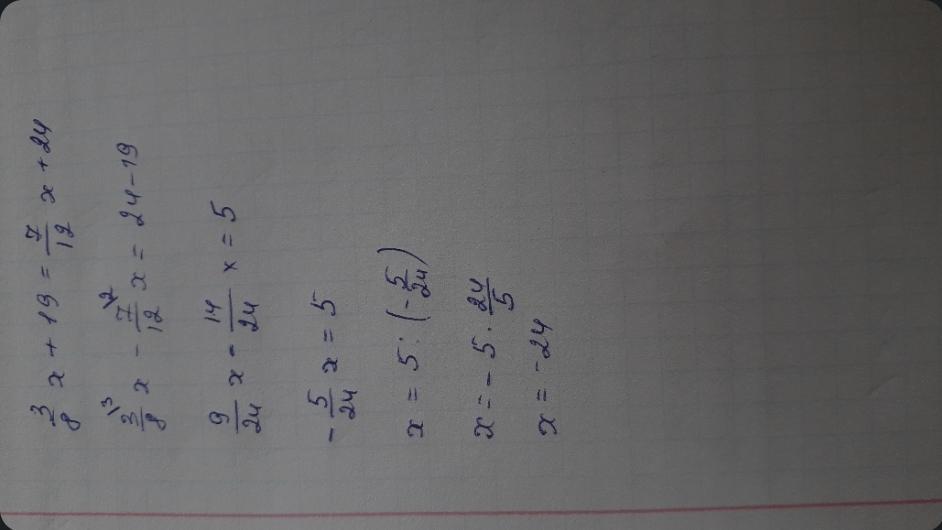 3/8 x + 19 = 7/12 x + 24
3\3/8 x - 7\2/12 x = 24 - 19
9/24 x - 14/24 x = 5
- 5/24 x = 5
x = 5 : (- 5/24)
x = - 5 · 24/5
x = -24